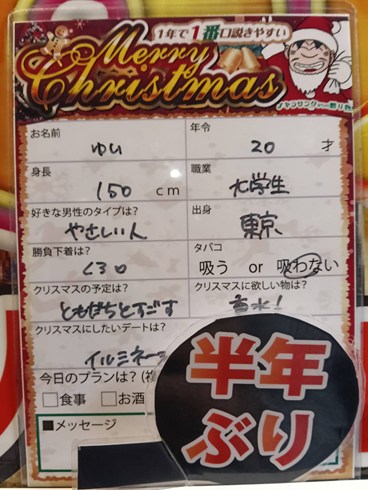 1年で1番口説きやすい
Merry
Christmas
お名前
ゆい
年令
20 才
身長
150 cm
職業
大学生
好きな男性のタイプは?
やさしい人
出身
東京
勝負下着は?
くろ
タバコ
吸う or 吸わない
クリスマスの予定は?
ともだちとすごす
クリスマスに欲しい物は?
香水!
クリスマスにしたいデートは?
イルミネー
今日のプランは?
□食事 □お酒
■メッセージ
半年
ぶり